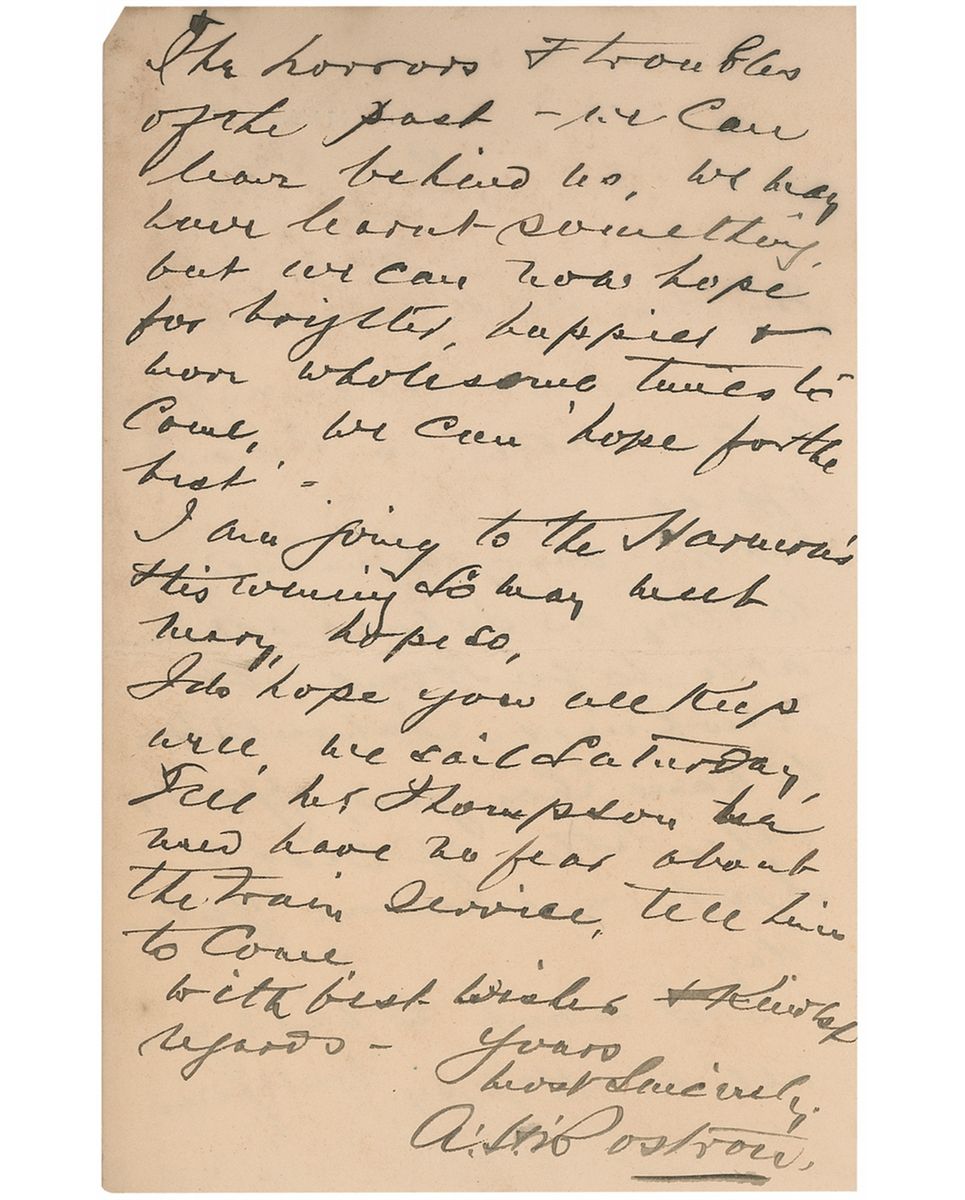 The horrors & troubles
of the past - we can
leave behind us, we may
have learnt something,
but we can now hope
for brighter, happier &
more wholesome times to
come, we can hope for the
best -
I am going to the
this evening so may meet
Mary, hope so,
I do hope you all keep
well, we sail Saturday,
Tell Mr Thompson he
need have no fear about
the train service, tell him
to come
with best wishes & kindest
regards - yours
most sincerely,
A. H. Rostron.